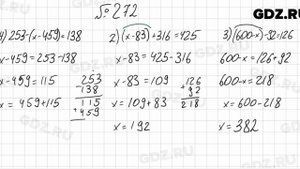 № 272
GDZ.RU
1) 253-(x-459)=138
x-459=253-138
x-459=115
x=459+115
253
138
115
+459
2) (x-83)+316=425
x-83=425-316
x-83=109
x=109+83
x=192
3) (600-x)-92=126
600-x=126+92
126
+92
218
600-x=218
x=600-218
x=382